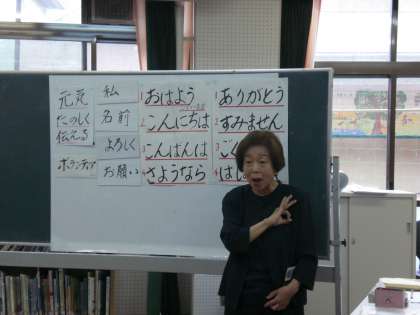 元気
たのしく
伝える
ボランティア
私
名前
よろしく
お願い
1 おはよう
2 こんにちは
3 こんばんは
4 さようなら
1 ありがとう
2 すみません
3 ご
4 は